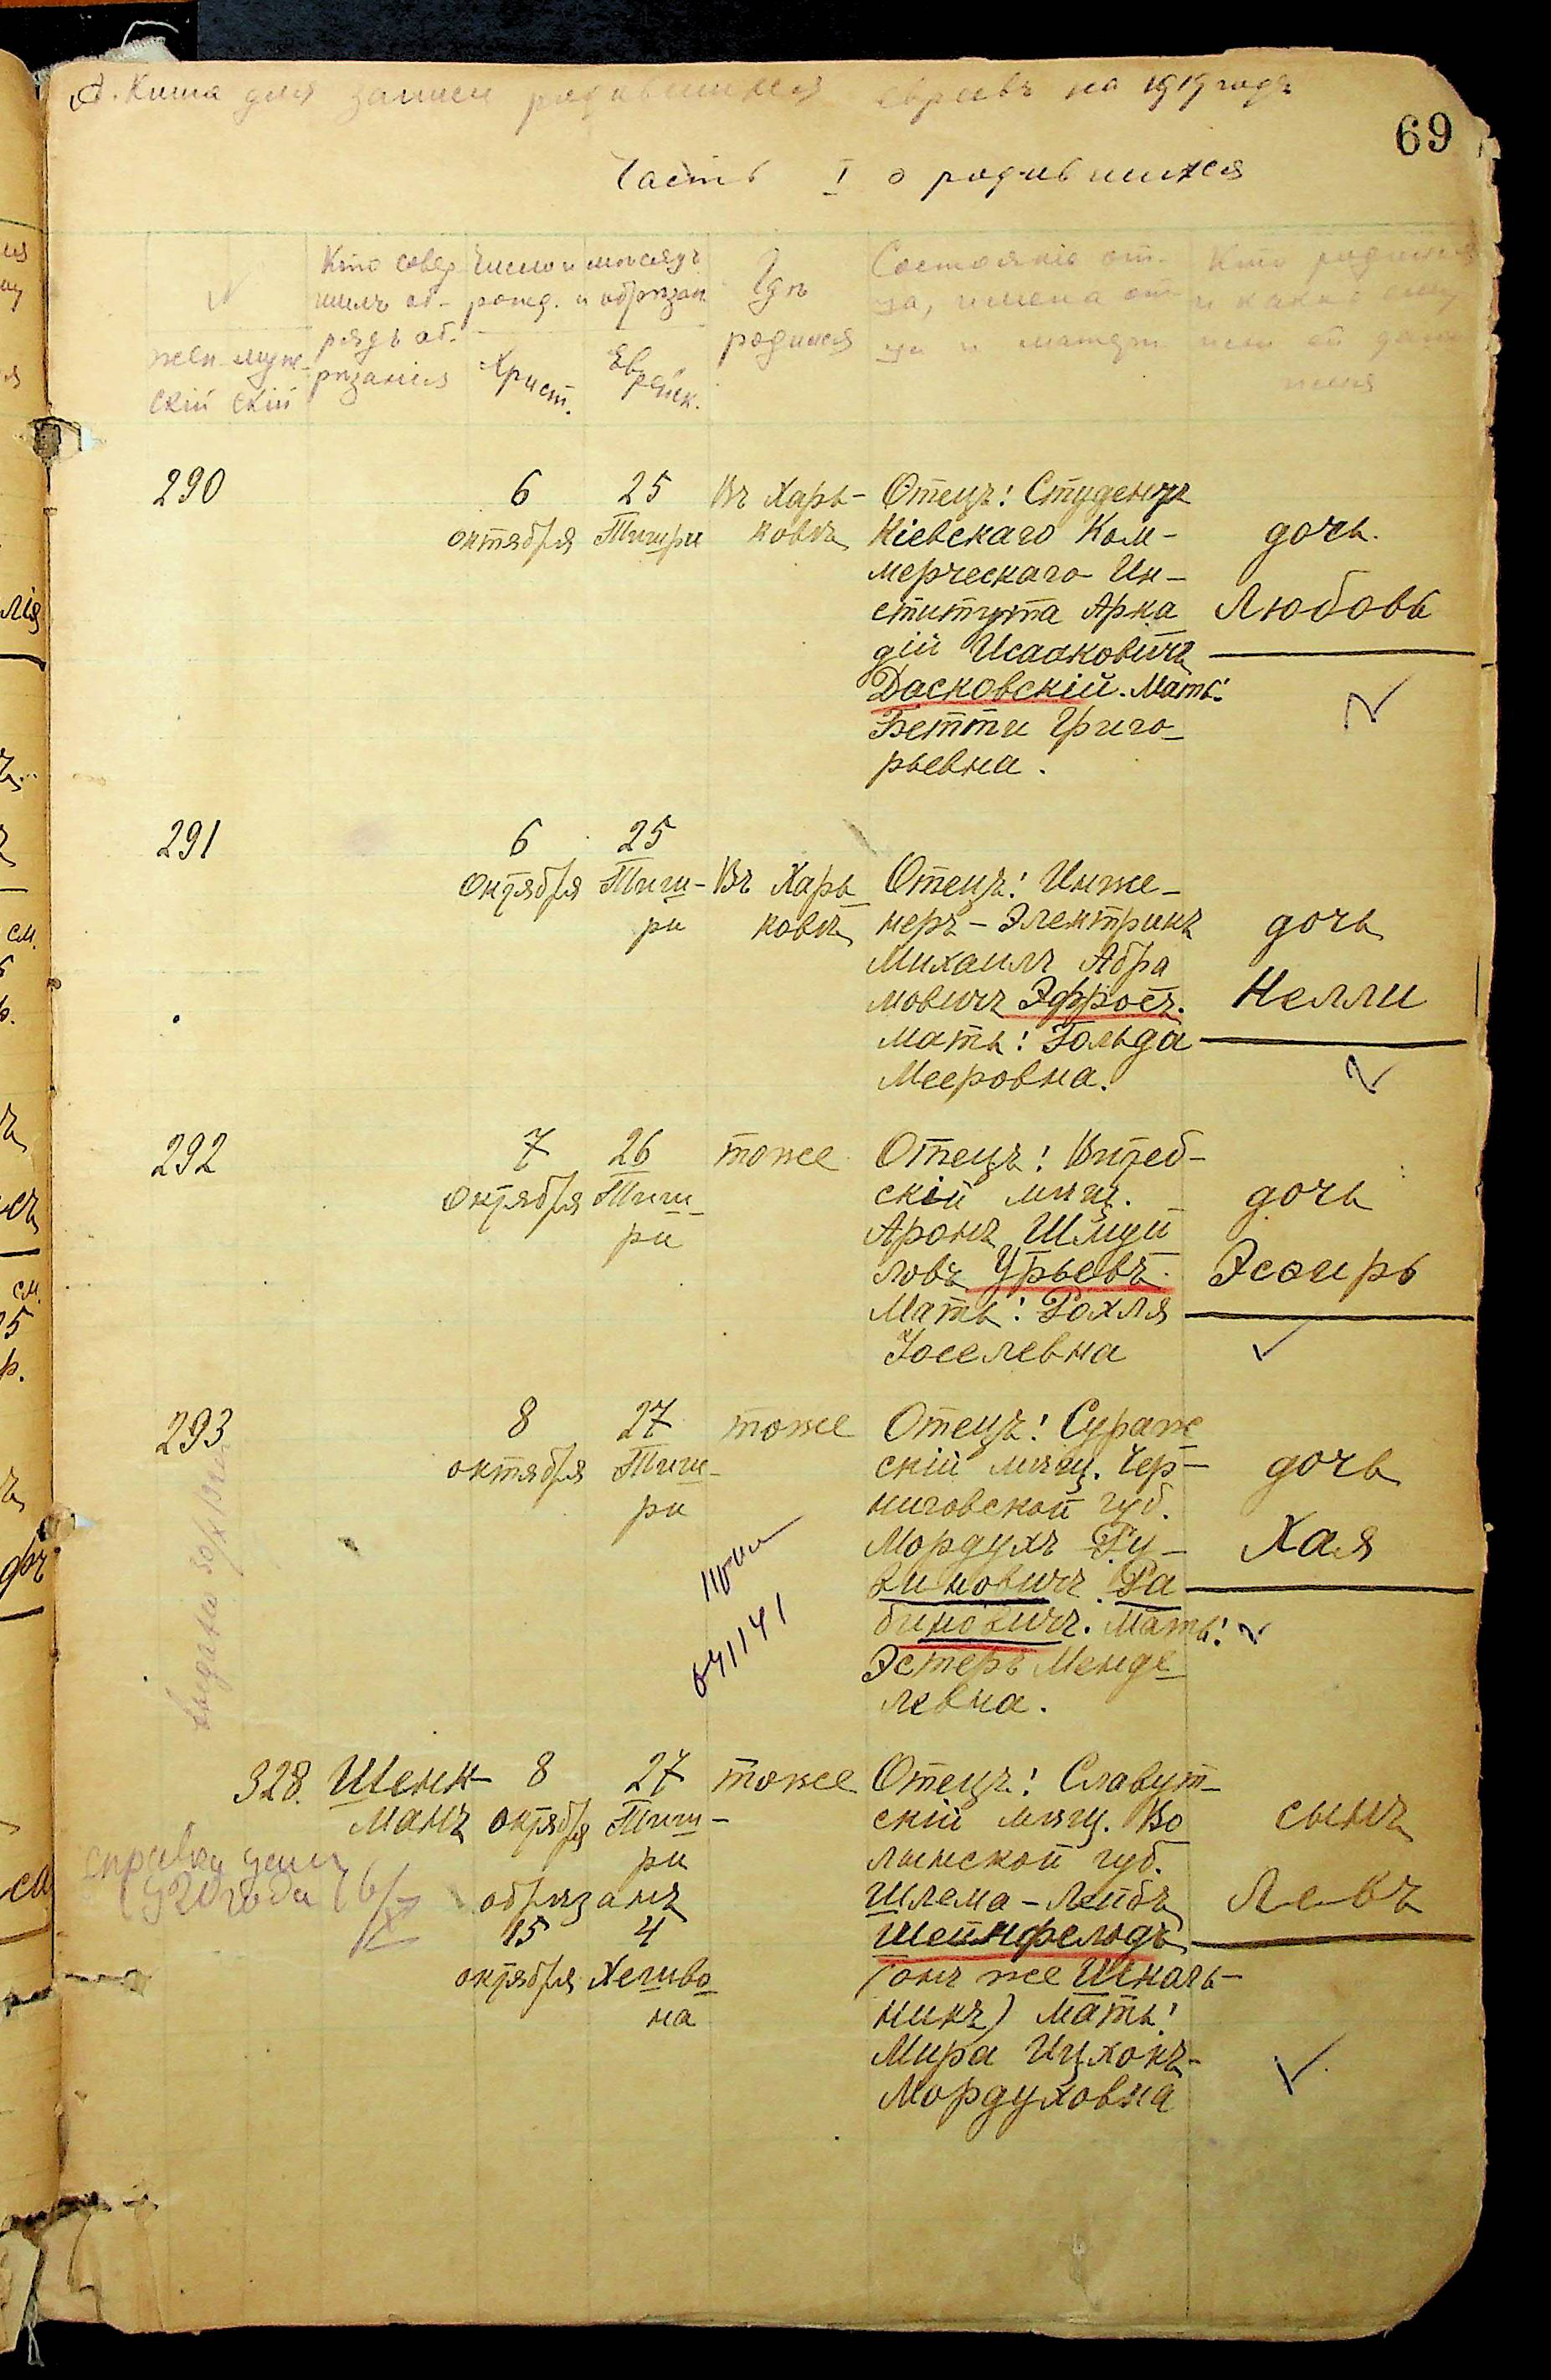 Книга для записи родившихся евреевъ на 1919 годъ
69
Часть I о родившихся
№
женскій мужескій
Кто совершилъ обрядъ обрѣзанія
Число и мѣсяцъ рожд. и обрѣзан.
Христ.
Еврейск.
Гдѣ родился
Состояніе отца, имена отца и матери
Кто родился и какое ему или ей дано имя
290
6 октября
25 Тишри
Въ Харь-
ковѣ
Отецъ: Студентъ
Кіевскаго Ком-
мерческаго Ин-
ститута Арка
дій Исааковичъ
Дасковскій. Мать:
Бетти Григо-
рьевна.
дочь.
Любовь
291
6 октября
25 Тиш-
ри
Въ Харь
ковѣ
Отецъ: Инже-
неръ-Электрикъ
Михаилъ Абра
мовичъ Эфросъ.
Мать: Гольда
Мееровна.
дочь
Нелли
292
7 октября
26 Тиш-
ри
тоже
Отецъ: Витеб-
скій мѣщ.
Аронъ Шмуй
ловъ Урьевъ.
Мать: Рохля
Іоселевна
дочь
Эсѳирь
293
8 октября
27 Тиш-
ри
тоже
Отецъ: Сураж
скій мѣщ. Чер-
ниговской губ.
Мордухъ Ру-
виновичъ Ра
биновичъ. Мать:
Эстеръ Менде
левна.
дочь
Хая
641141
328.
Шенк-
манъ
8 октября
27 Тиш-
ри
обрѣзанъ
15 октября
4 Хешво
на
тоже
Отецъ: Славут-
скій мѣщ. Во
лынской губ.
Шлема-Лейбъ
Шейнфельдъ
(онъ же Школь-
никъ) Мать:
Мира Ицхокъ-
Мордуховна
сынъ
Левъ